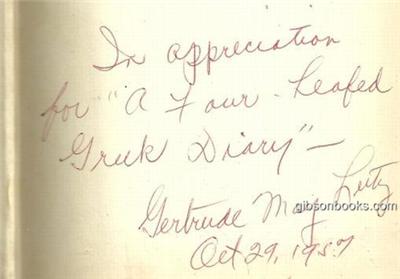 In appreciation
for "A Four-Leafed
Greek Diary" —
Gertrude May Lutz
gibsonbooks.com
Oct 29, 1957